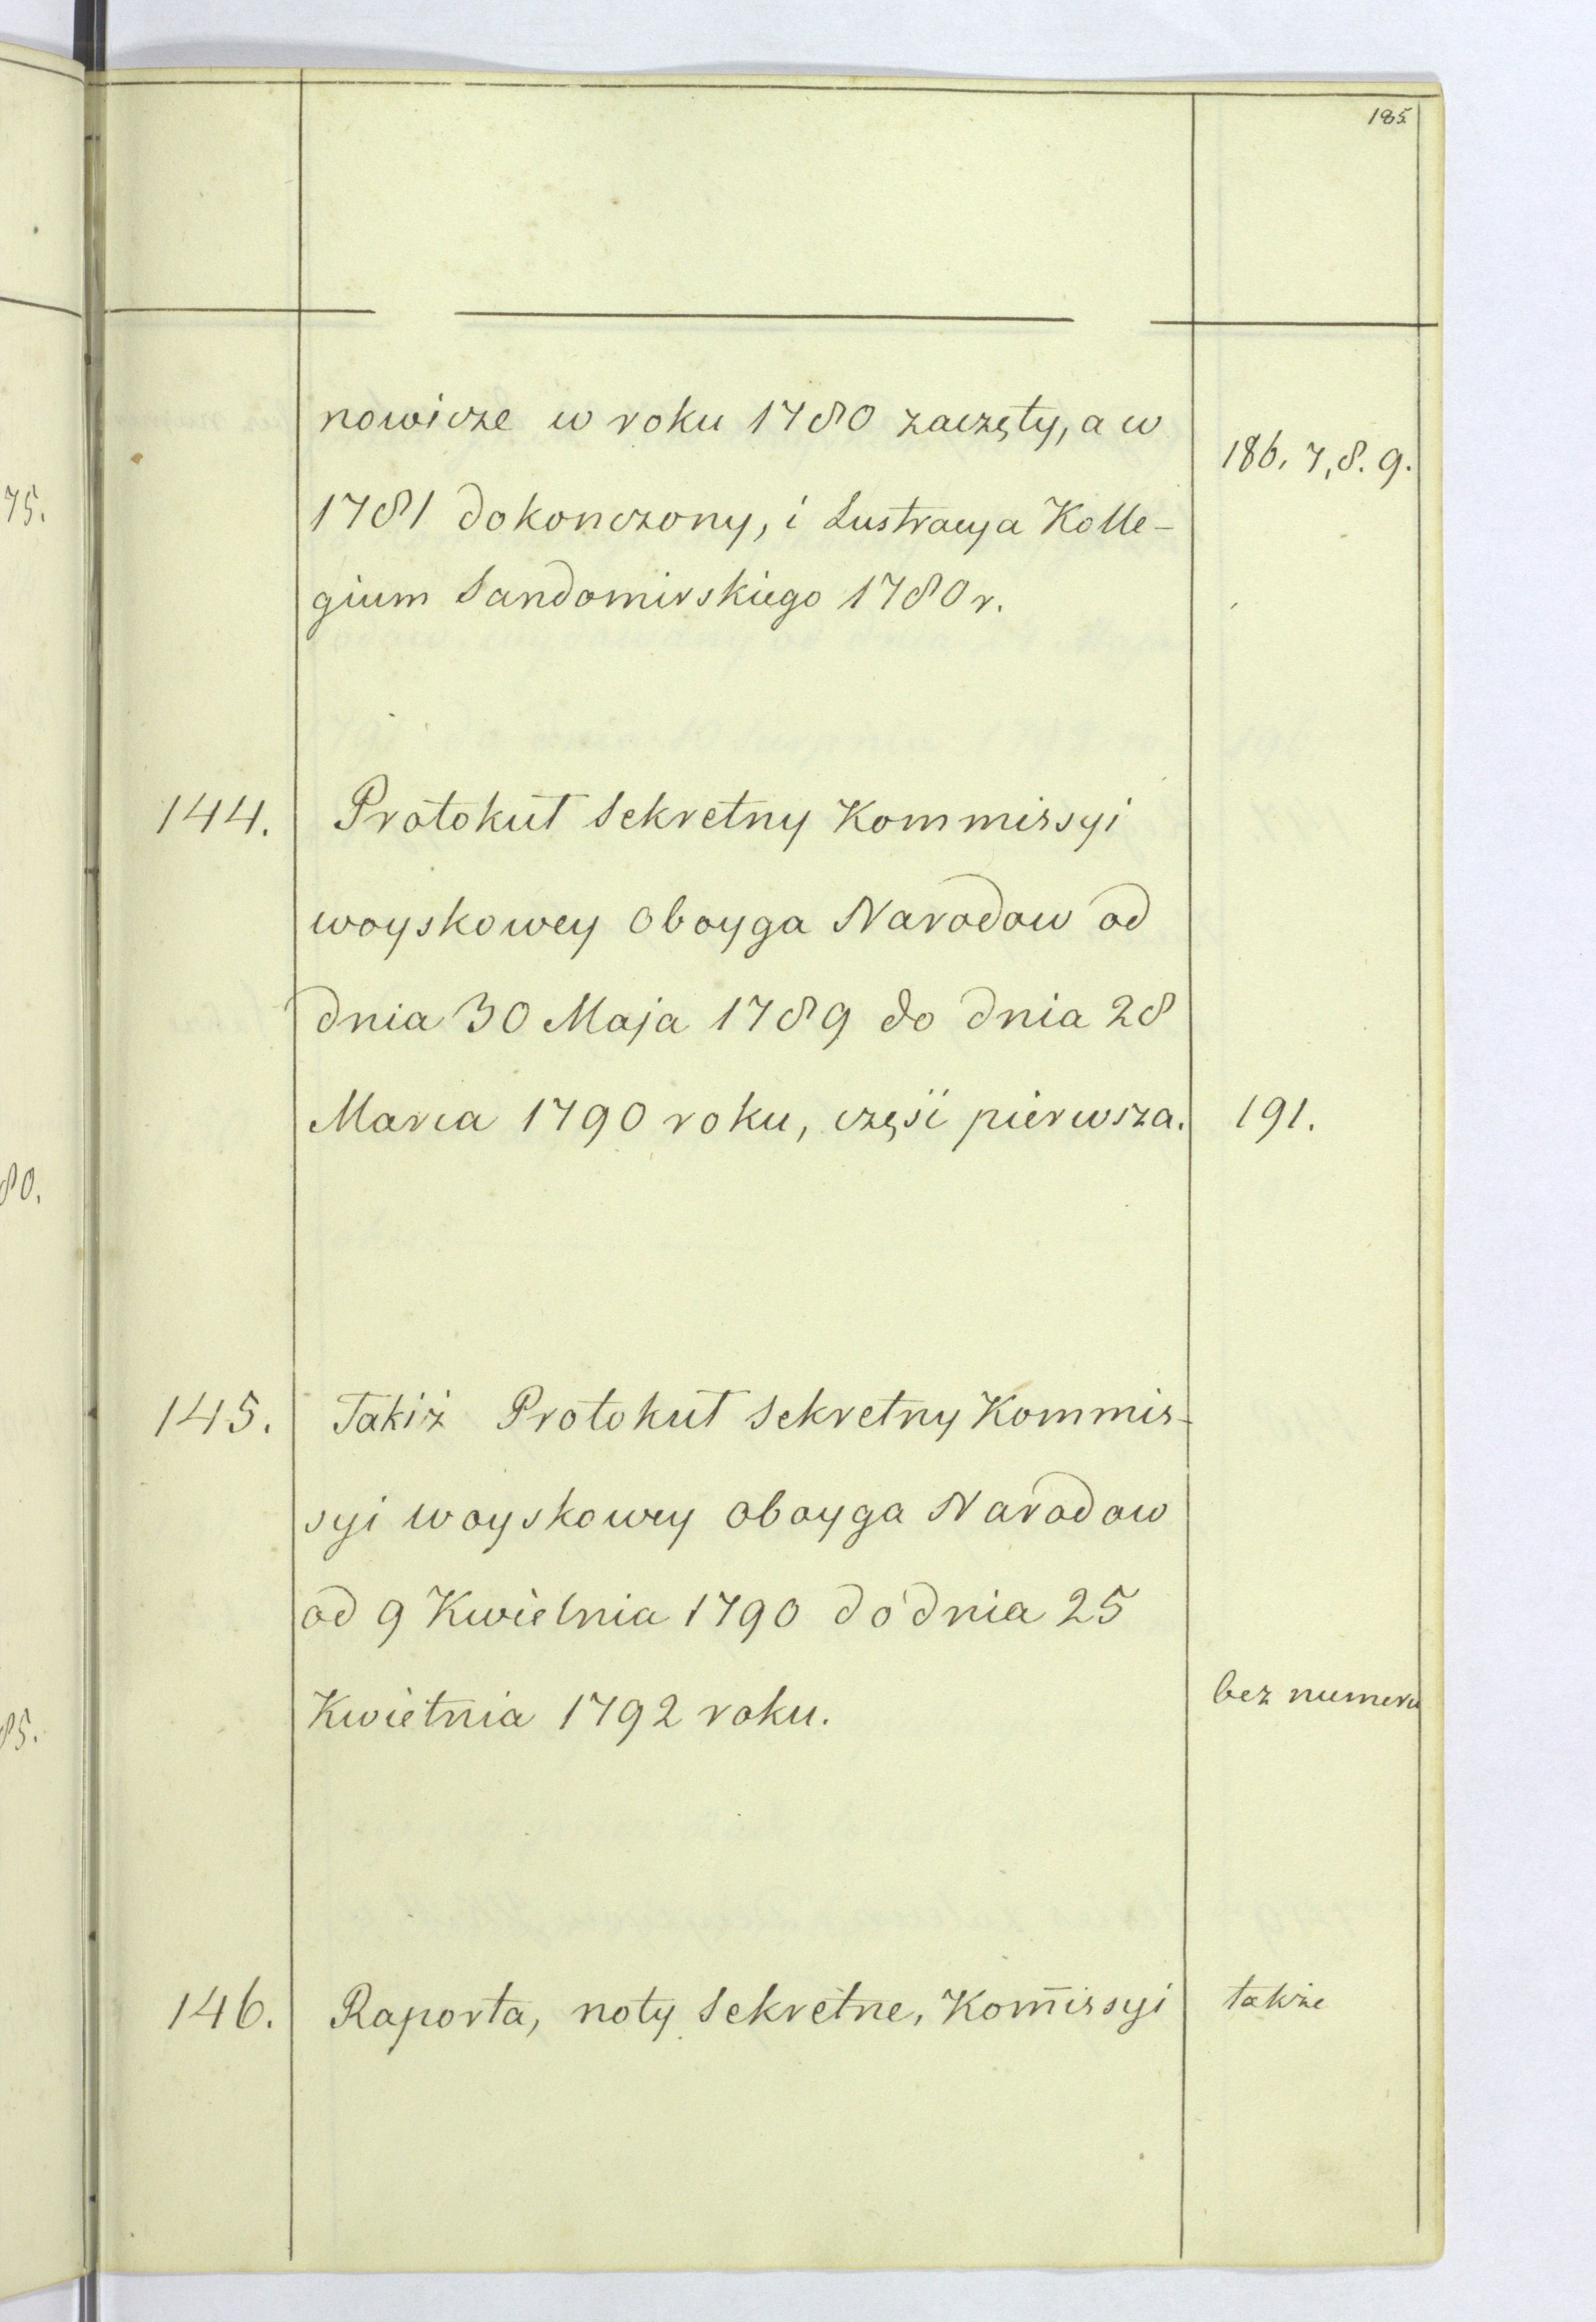 185
nowicze w roku 1780 zaczęty, a w
186, 7, 8. 9.
1781 dokonczony, i Lustracya Kolle-
gium Sandomirskiego 1780 r.
75.
144. Protokuł Sekretny Kommissyi
woyskowey Oboyga Narodow od
dnia 30 Maja 1789 do dnia 28
Marca 1790 roku, część pierwsza. 191.
80.
145. Takiż Protokuł Sekretny Kommis-
syi woyskowey Oboyga Narodow
od 9 Kwielnia 1790 do dnia 25
Kwietnia 1792 roku. bez numeru
85.
146. Raporta, noty Sekretne, Kom̄issyi także